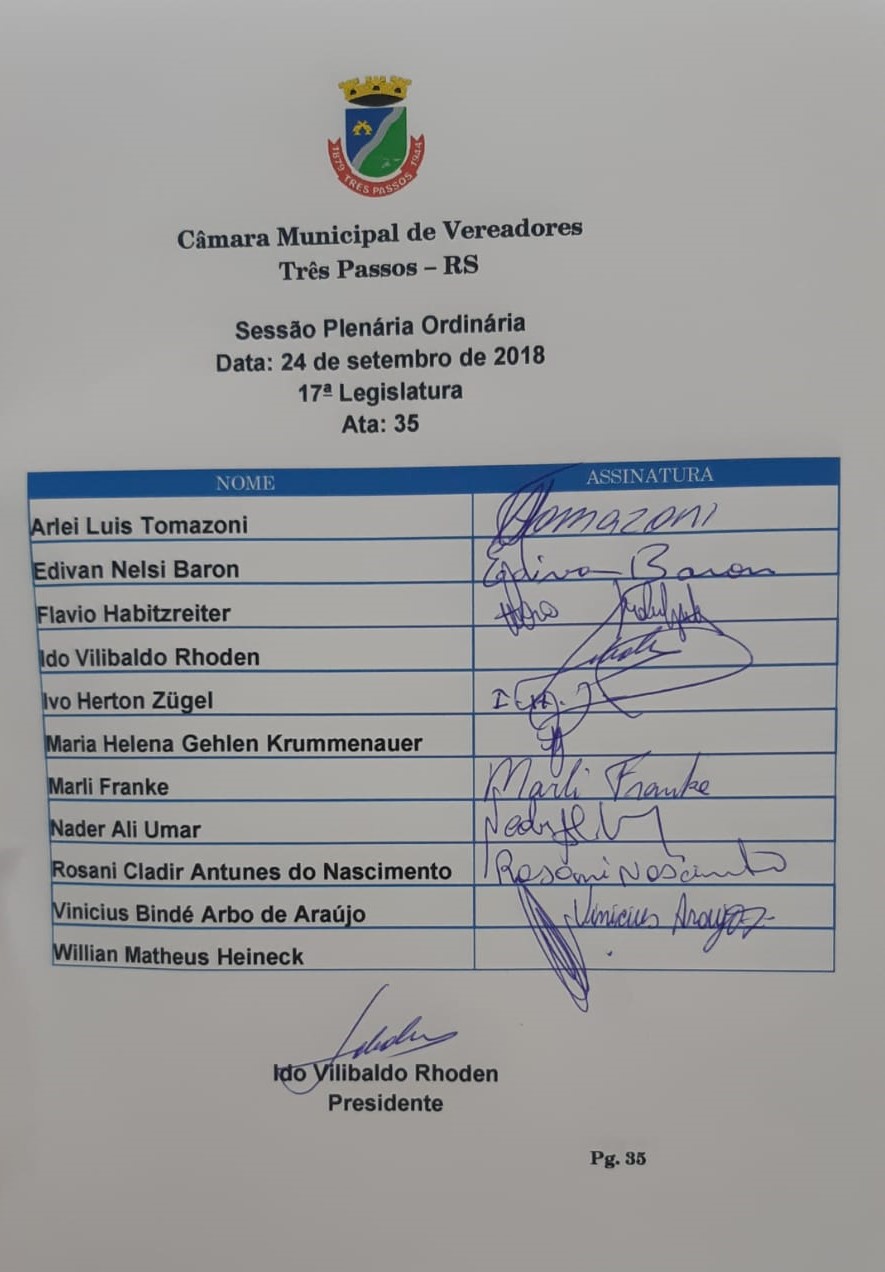 1879 TRÊS PASSOS 1944
Câmara Municipal de Vereadores
Três Passos – RS
Sessão Plenária Ordinária
Data: 24 de setembro de 2018
17ª Legislatura
Ata: 35
NOME ASSINATURA
Arlei Luis Tomazoni Tomazoni
Edivan Nelsi Baron Edivan Baron
Flavio Habitzreiter
Ido Vilibaldo Rhoden
Ivo Herton Zügel
Maria Helena Gehlen Krummenauer
Marli Franke Marli Franke
Nader Ali Umar
Rosani Cladir Antunes do Nascimento Rosani Nascimento
Vinicius Bindé Arbo de Araújo Vinicius Araujo
Willian Matheus Heineck
Ido Vilibaldo Rhoden
Presidente
Pg. 35